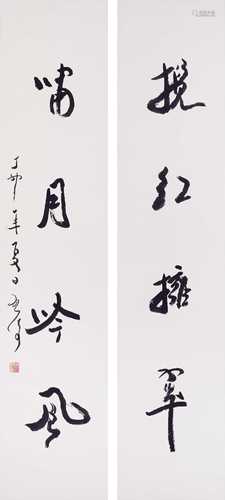 揽红拥翠
啸月吟风
丁卯年夏日